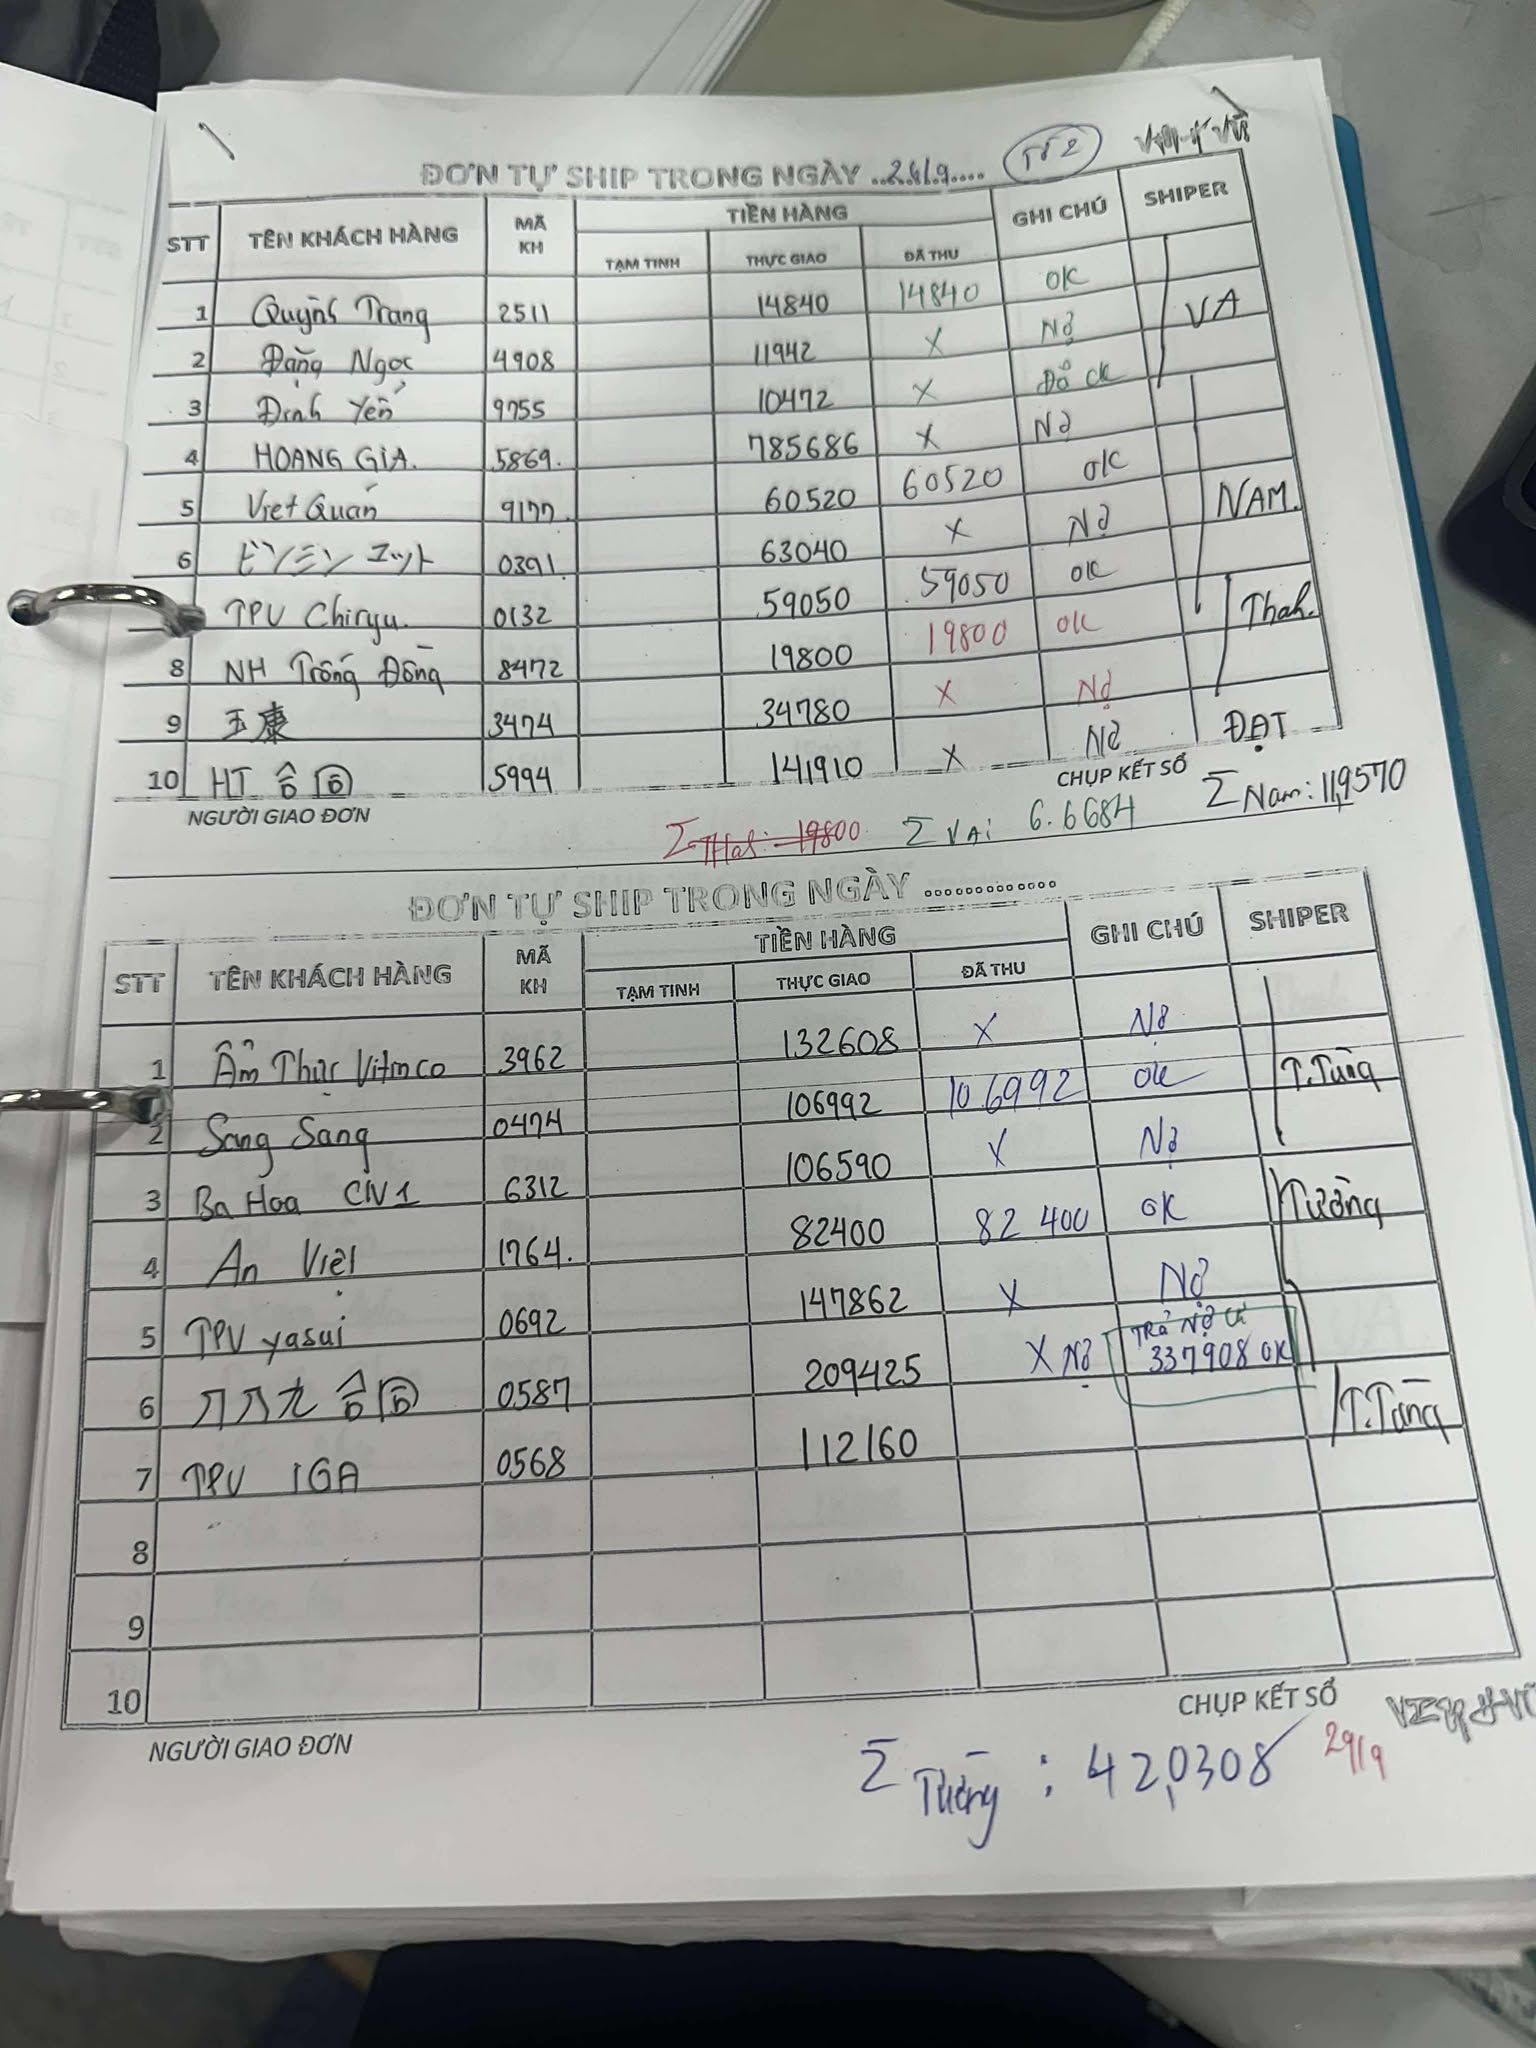 ĐƠN TỰ SHIP TRONG NGÀY ..24/9....
STT TÊN KHÁCH HÀNG MÃ KH TIỀN HÀNG GHI CHÚ SHIPER
TẠM TINH THỰC GIAO ĐÃ THU
1 Quỳnh Trang 2511 14840 14840 OK
VA
2 Đặng Ngọc 4908 11942 X Nợ
3 Định Yến 9755 10472 X Đổ CK
4 HOANG GIA. 5869. 785686 X Nợ
5 Viet Quán 9177 60520 60520 OK
NAM.
6 ビンミンエット 0391 63040 X Nợ
TPV Chiryu. 0132 59050 59050 OK
8 NH Trống Đồng 8472 19800 19800 OK
Thah.
9 玉康 3474 34780 X Nợ
10 HT 合同 5994 141910 X Nợ ĐẠT
NGƯỜI GIAO ĐƠN CHỤP KẾT SỔ
Σ VA: 6.6684 Σ Nam: 11,9570
ĐƠN TỰ SHIP TRONG NGÀY .............
STT TÊN KHÁCH HÀNG MÃ KH TIỀN HÀNG GHI CHÚ SHIPER
TẠM TINH THỰC GIAO ĐÃ THU
1 Ẩm Thực Vitmco 3962 132608 X Nợ
T.Tùng
2 Sang Sang 0474 106992 106992 OK
3 Ba Hoa CN1 6312 106590 X Nợ
4 An Việt 1764. 82400 82400 OK
Tường
5 TPV yasui 0692 147862 X Nợ
6 八八九 合同 0587 209425 X Nợ TRẢ NỢ Cũ 337908 OK
7 TPV IGA 0568 112160
T.Tùng
8
9
10
NGƯỜI GIAO ĐƠN CHỤP KẾT SỔ
Σ Tường : 42,0308 29/9